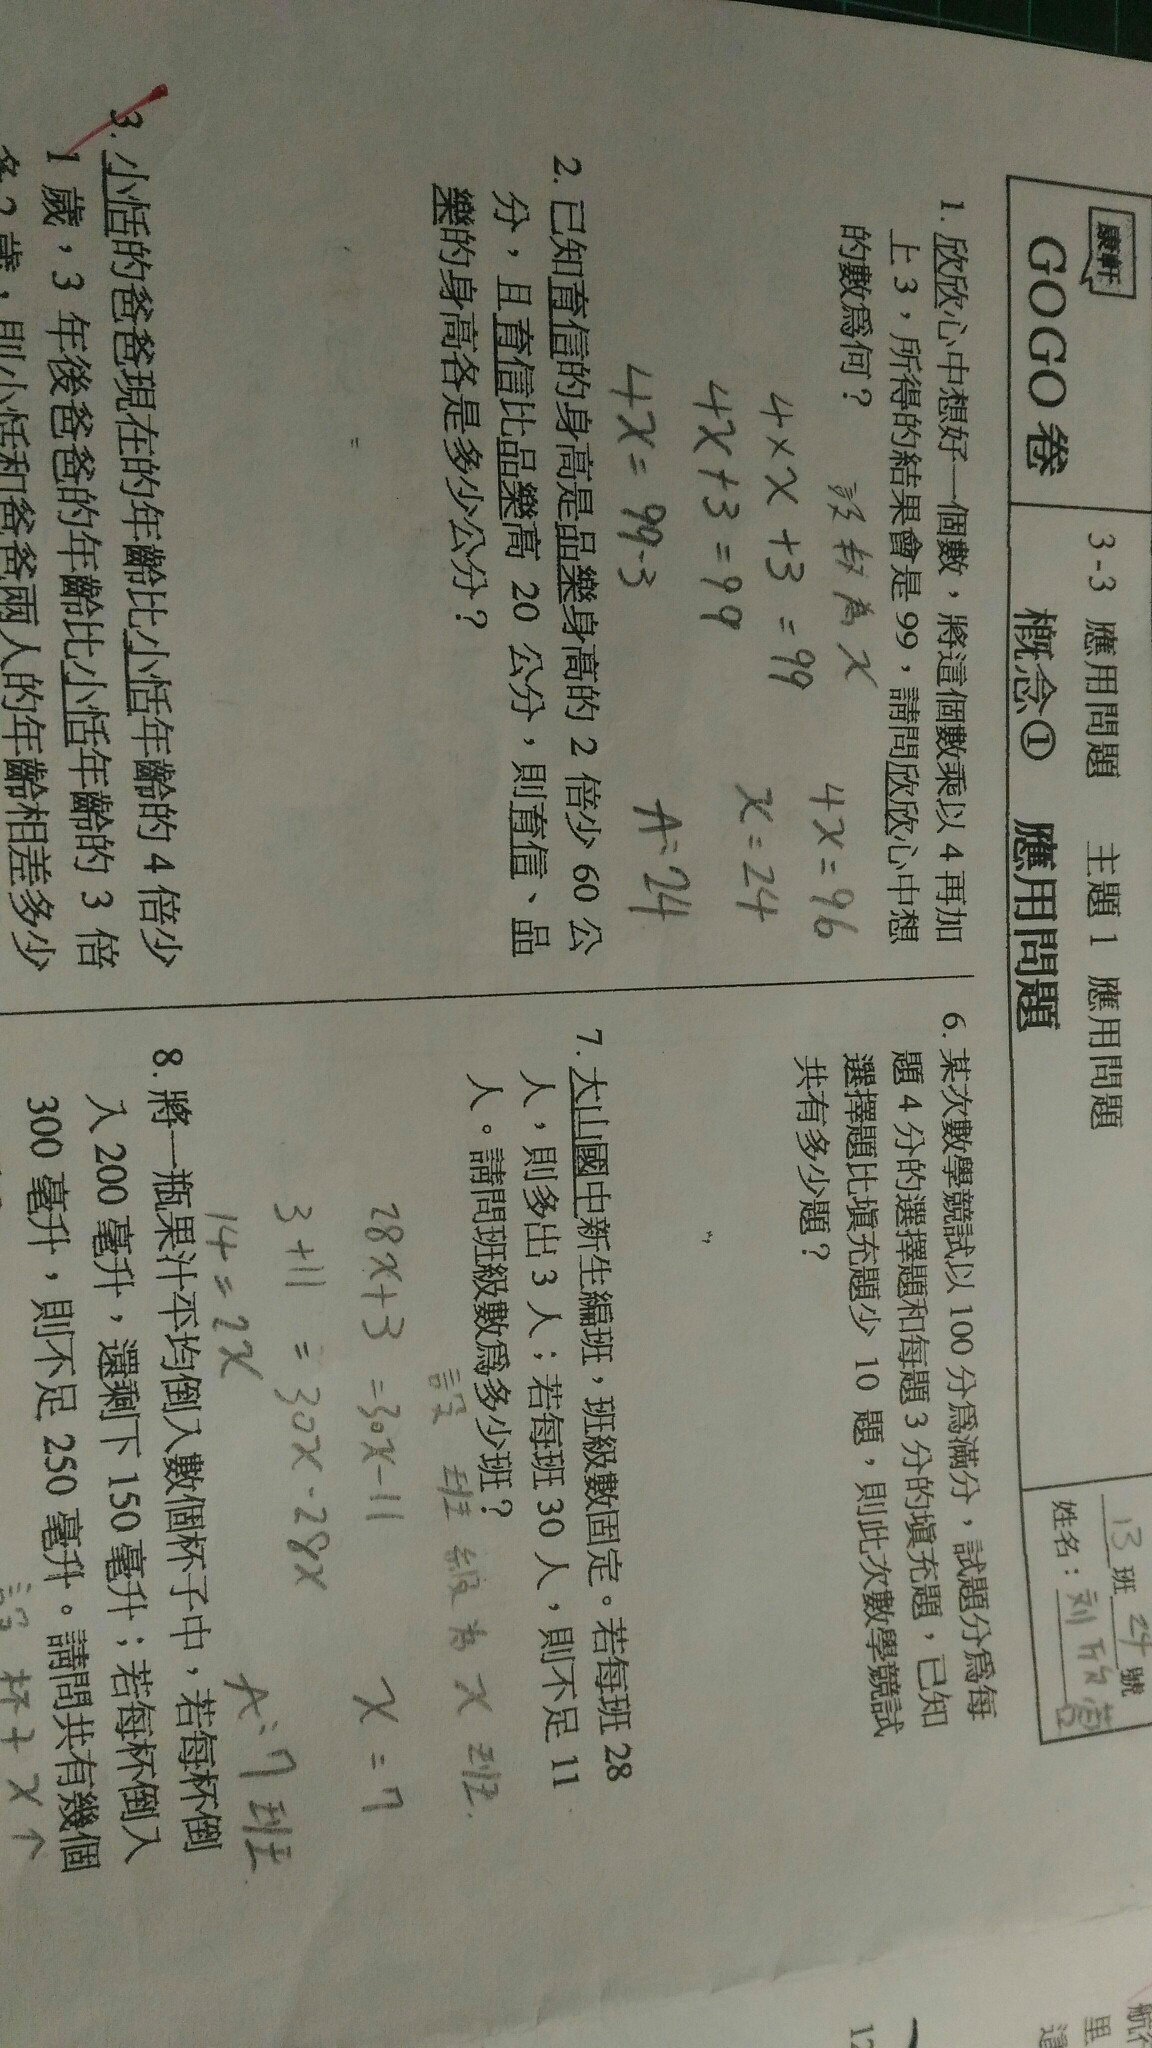 康軒
GOGO 卷
3-3 應用問題 主題 1 應用問題
概念① 應用問題
13班 24號
姓名：劉欣
1. 欣欣心中想好一個數，將這個數乘以 4 再加
上 3，所得的結果會是 99，請問欣欣心中想
的數為何？
設數為 x
4×x+3=99
4x+3=99
4x=99-3
4x=96
x=24
A：24
2. 已知育信的身高是品樂身高的 2 倍少 60 公
分，且育信比品樂高 20 公分，則育信、品
樂的身高各是多少公分？
3. 小恬的爸爸現在的年齡比小恬年齡的 4 倍少
1 歲，3 年後爸爸的年齡比小恬年齡的 3 倍
多 2 歲，則小恬和爸爸兩人的年齡相差多少
6. 某次數學競試以 100 分為滿分，試題分為每
題 4 分的選擇題和每題 3 分的填充題，已知
選擇題比填充題少 10 題，則此次數學競試
共有多少題？
7. 大山國中新生編班，班級數固定。若每班 28
人，則多出 3 人；若每班 30 人，則不足 11
人。請問班級數為多少班？
設班級為 x 班.
28x+3=30x-11
3+11=30x-28x
14=2x
x=7
A：7班
8. 將一瓶果汁平均倒入數個杯子中，若每杯倒
入 200 毫升，還剩下 150 毫升；若每杯倒入
300 毫升，則不足 250 毫升。請問共有幾個
設杯子 x 个
航行
里
這
12